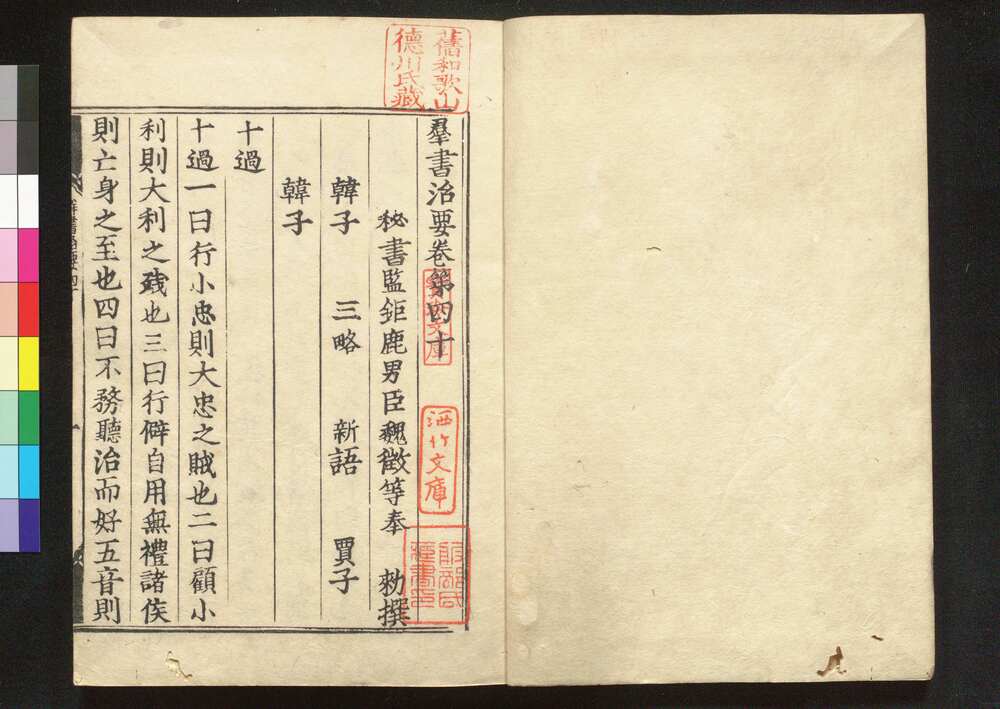 舊和歌山
德川氏藏
羣書治要卷第四十
洒竹文庫
秘書監鉅鹿男臣魏徵等奉　勑撰
韓子　三略　新語　賈子
韓子
十過
十過一曰行小忠則大忠之賊也二曰顧小
利則大利之殘也三曰行僻自用無禮諸侯
則亡身之至也四曰不務聽治而好五音則